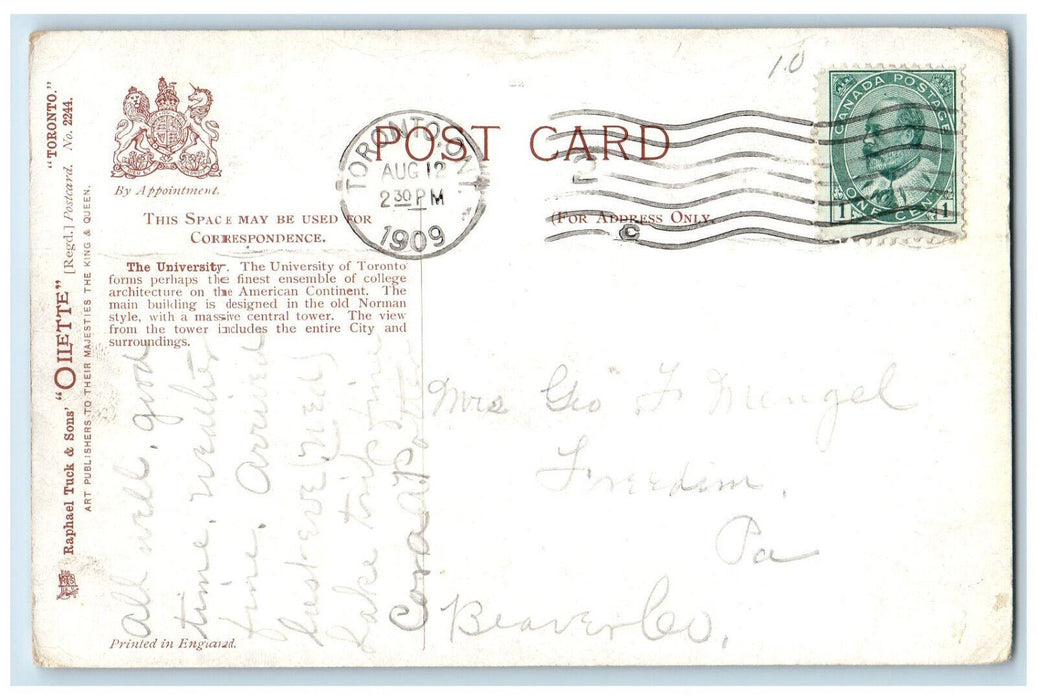 10
CANADA POSTAGE
1 ONE CENT 1
TORONTO, ONT.
AUG 12
2 30 PM
1909
2
C
POST CARD
By Appointment.
THIS SPACE MAY BE USED FOR
CORRESPONDENCE.
(FOR ADDRESS ONLY.
The University. The University of Toronto
forms perhaps the finest ensemble of college
architecture on the American Continent. The
main building is designed in the old Norman
style, with a massive central tower. The view
from the tower includes the entire City and
surroundings.
Raphael Tuck & Sons' "OILETTE" [Regd.] Postcard. No. 2244.
"TORONTO."
ART PUBLISHERS TO THEIR MAJESTIES THE KING & QUEEN.
All well, good
time, weather
fine, Arrived
last eve (Wed)
Lake trip fine
Cora A Potter
Mrs Geo F Mengel
Freedom,
Pa
Beaver Co,
Printed in England.